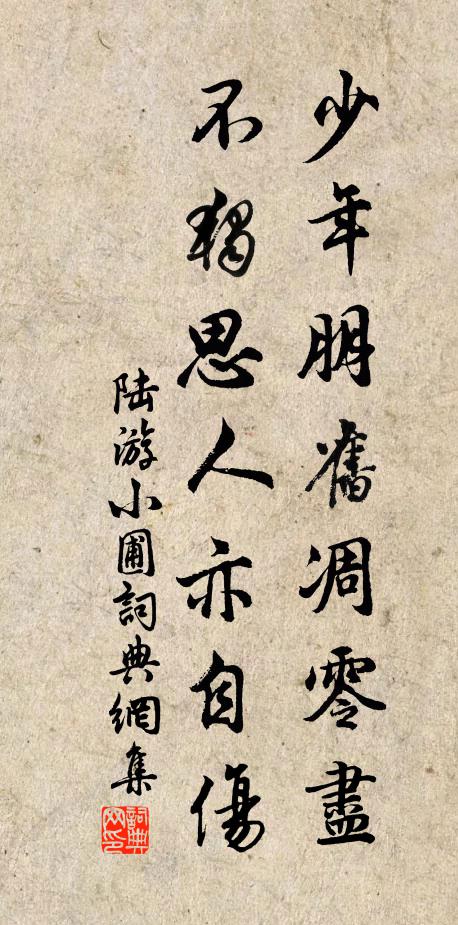 少年朋舊凋零盡
不獨思人亦自傷
陸游小圃詞典網集
詞典網印